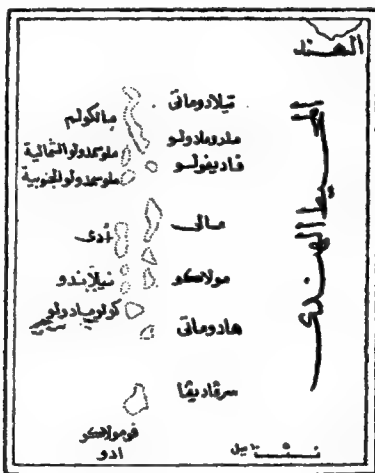 الهند
المحيط الهندى
تيلادوماتى
مالكولم
ملدومادولو
ملوسمدولو الشمالية
فاديفولو
ملوسمدولو الجنوبية
مالى
أدى
مولاكو
نيلاندو
كولومادولو
هادوماتى
سرفاديفا
فومولاكو
ادو
ميل